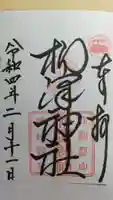 奉拝
柳澤神社
令和四年二月十一日